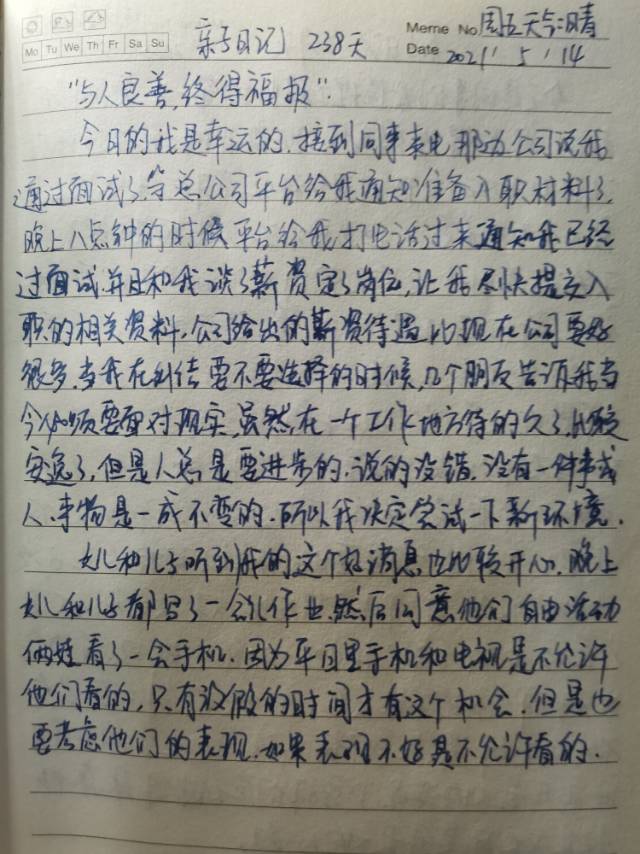 Mo Tu We Th Fr Sa Su
亲子日记 238天
Meme No. 周五天气:晴
Date 2021 / 5 / 14
"与人良善,终得福报".
今日的我是幸运的.接到同事来电那边公司说我
通过面试了,等总公司平台给我通知准备入职材料了.
晚上八点钟的时候平台给我打电话过来通知我已经
过面试.并且和我谈了薪资定了岗位,让我尽快提交入
职的相关资料,公司给出的薪资待遇比现在公司要好
很多,当我在纠结要不要选择的时候,几个朋友告诉我当
今必须要面对现实,虽然在一个工作地方待的久了,比较
安逸了,但是人总是要进步的.说的没错.没有一件事或
人.事物是一成不变的.所以我决定尝试一下新环境.
大儿和儿子听到我的这个好消息也比较开心.晚上
大儿和儿子都写了一会儿作业.然后同意他们自由活动
俩娃看了一会手机.因为平日里手机和电视是不允许
他们看的,只有放假的时间才有这个机会.但是也
要考虑他们的表现.如果表现不好是不允许看的.